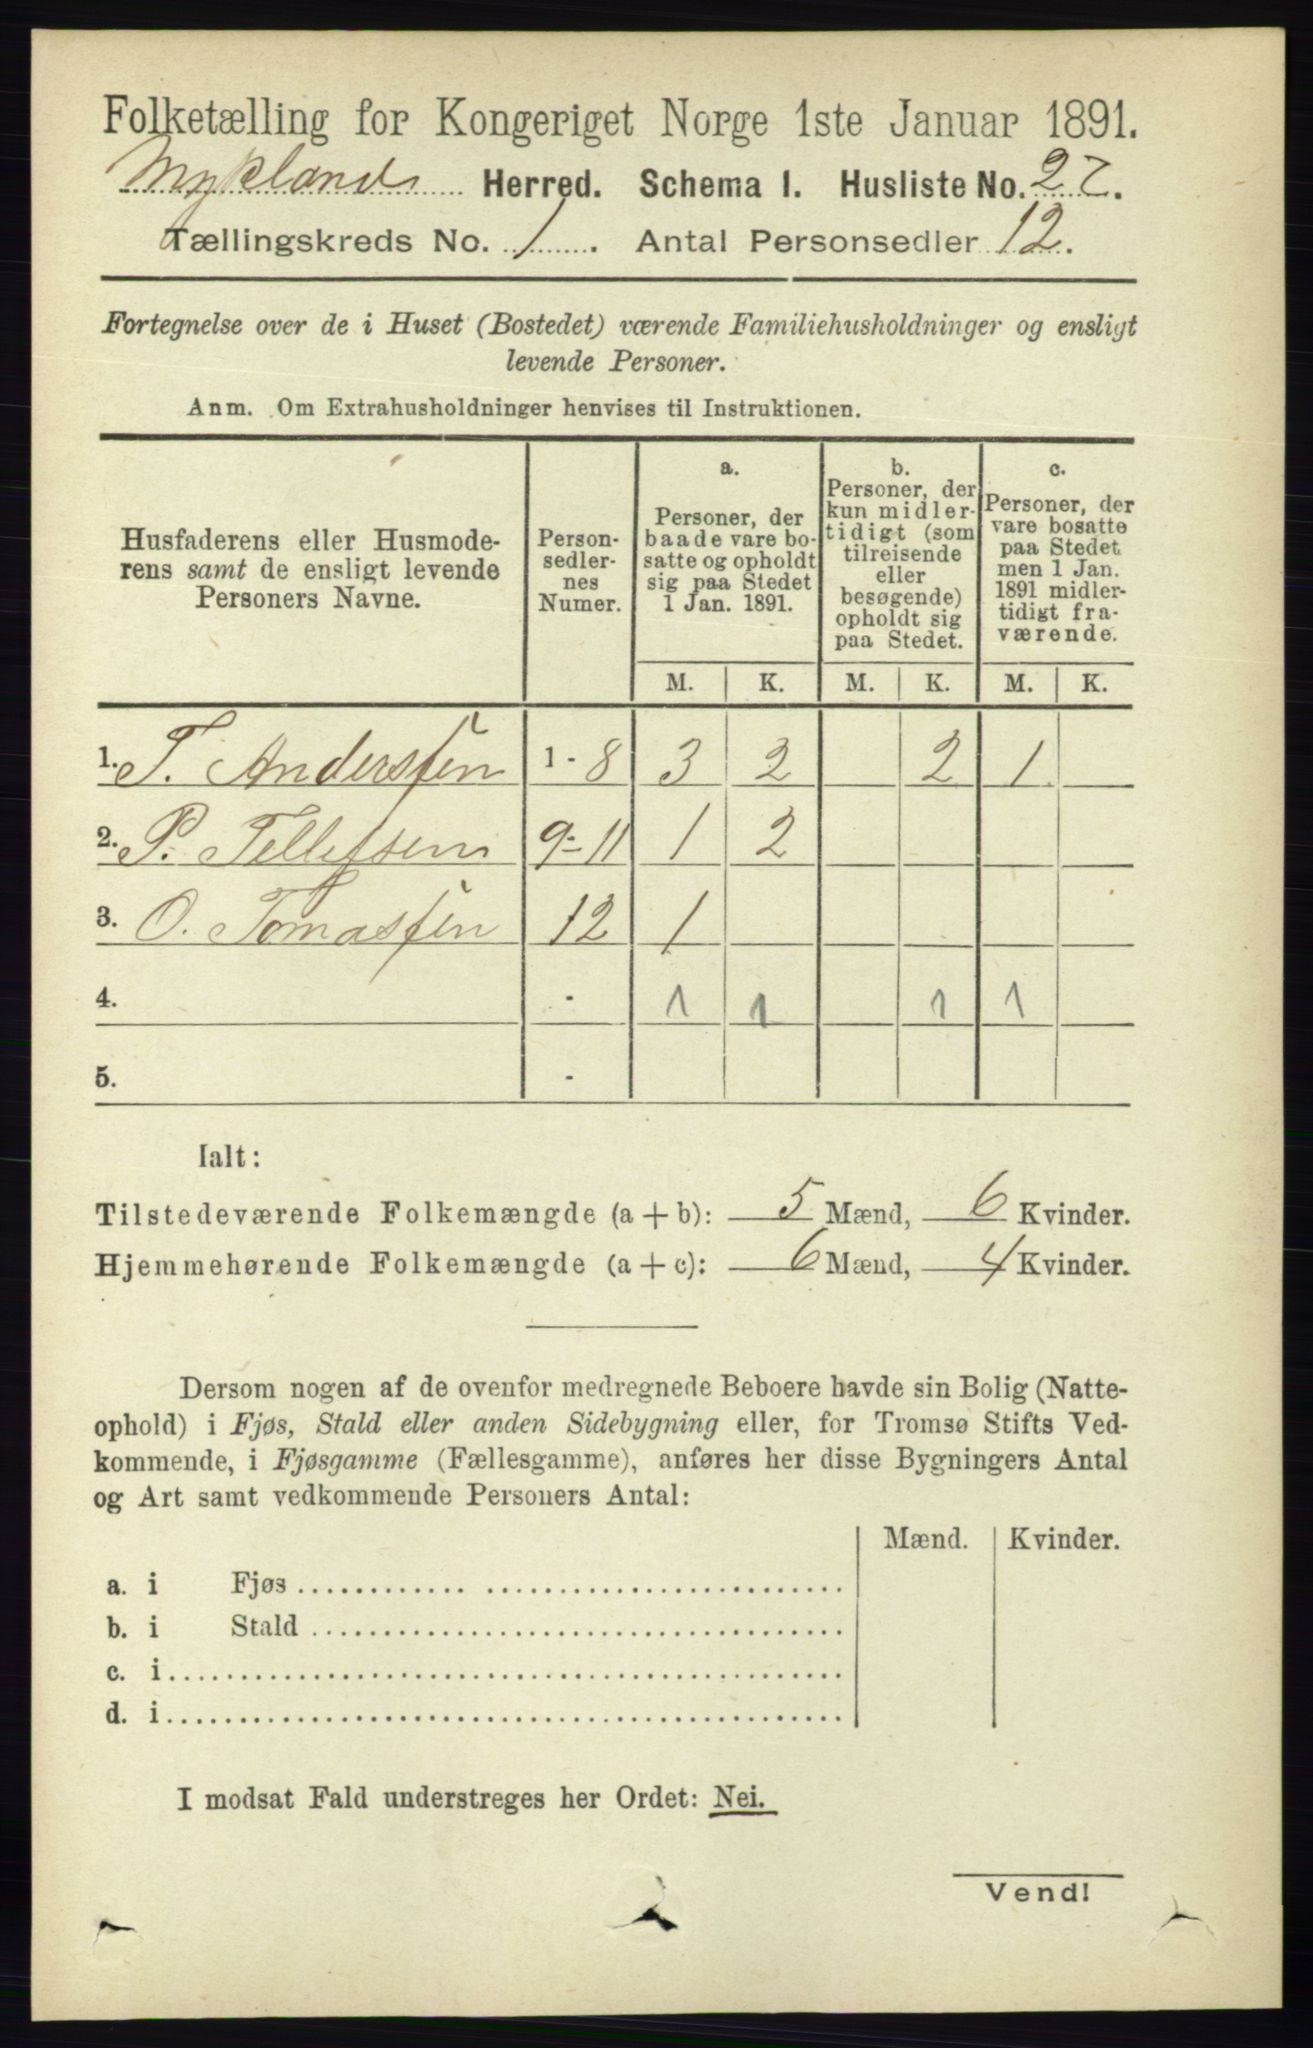 Folketælling for Kongeriget Norge 1ste Januar 1891.
Myklands Herred. Schema I. Husliste No. 27.
Tællingskreds No. 1. Antal Personsedler 12.
Fortegnelse over de i Huset (Bostedet) værende Familiehusholdninger og ensligt
levende Personer.
Anm. Om Extrahusholdninger henvises til Instruktionen.
Husfaderens eller Husmode-
rens samt de ensligt levende
Personers Navne.
Person-
sedler-
nes
Numer.
a.
Personer, der
baade vare bo-
satte og opholdt
sig paa Stedet
1 Jan. 1891.
b.
Personer, der
kun midler-
tidigt (som
tilreisende
eller
besøgende)
opholdt sig
paa Stedet.
c.
Personer, der
vare bosatte
paa Stedet
men 1 Jan.
1891 midler-
tidigt fra-
værende.
M. K. M. K. M. K.
1. T. Anderssen 1 - 8 3 2 2 1
2. P. Tellefsen 9-11 1 2
3. O. Tomassen 12 1
4. - 1 1 1 1
5. -
Ialt:
Tilstedeværende Folkemængde (a + b): 5 Mænd, 6 Kvinder.
Hjemmehørende Folkemængde (a + c): 6 Mænd, 4 Kvinder.
Dersom nogen af de ovenfor medregnede Beboere havde sin Bolig (Natte-
ophold) i Fjøs, Stald eller anden Sidebygning eller, for Tromsø Stifts Ved-
kommende, i Fjøsgamme (Fællesgamme), anføres her disse Bygningers Antal
og Art samt vedkommende Personers Antal:
Mænd. Kvinder.
a. i Fjøs
b. i Stald
c. i
d. i
I modsat Fald understreges her Ordet: Nei.
Vend!